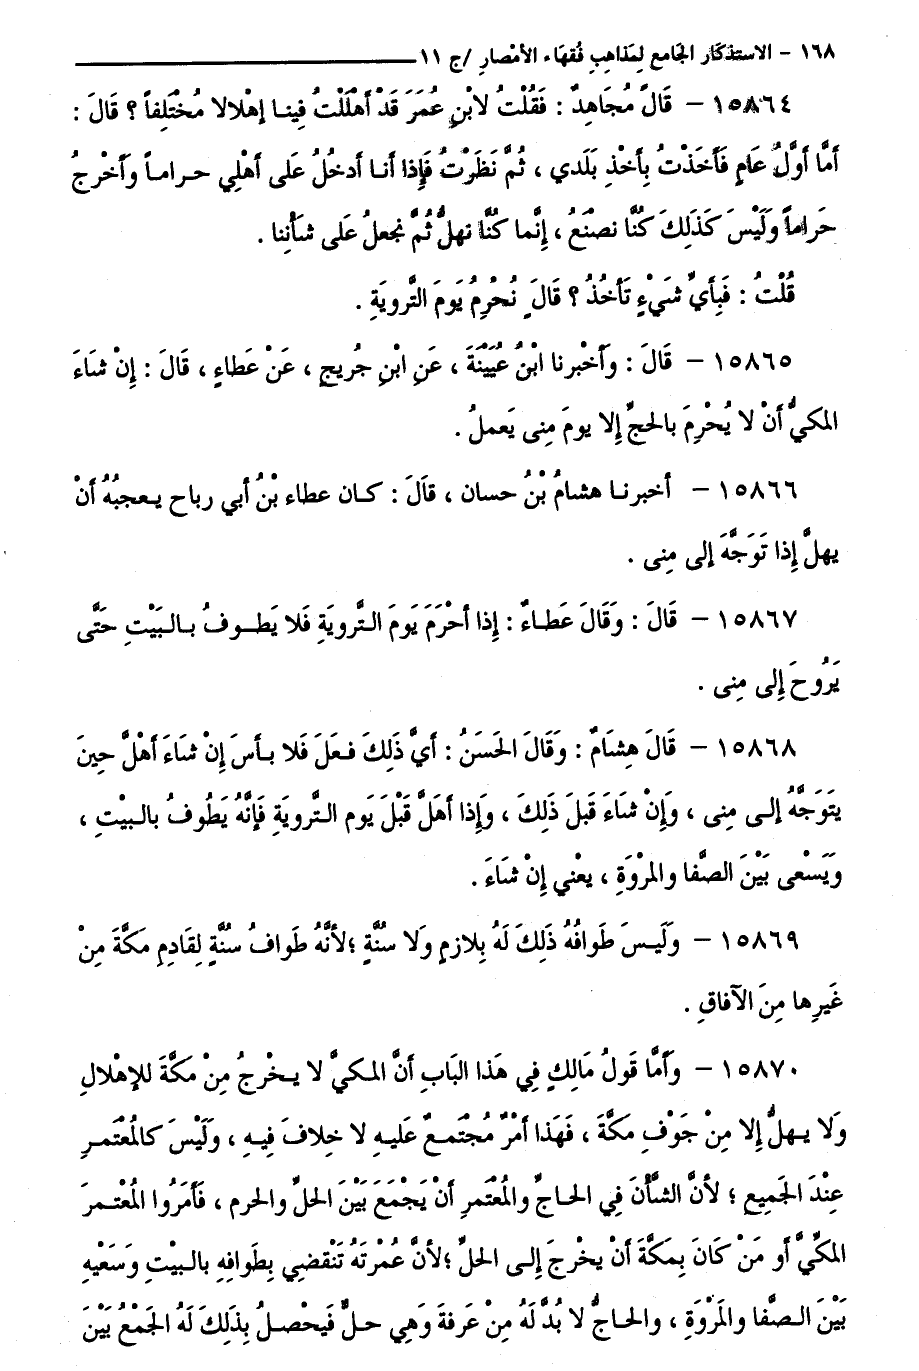 ١٦٨ - الاستذكار الجامع لِمَذاهِبِ فُقهَاء الأمْصارِ / ج ١١
١٥٨٦٤ - قَالَ مُجَاهِدٌ : فَقُلْتُ لابْنِ عُمَرَ قَدْ أَهْلَلْتُ فِينا إهْلالا مُخْتَلِفاً ؟ قَالَ :
أمَّا أوَّلُ عَامٍ فَأخَذْتُ بِأَخْذِ بَلَدي ، ثُمَّ نَظَرْتُ فَإِذا أنا أدخُلُ عَلى أهْلِي حراماً وأخْرجُ
حَراماً وَلَيْسَ كَذَلِكَ كُنَّا نصْنَعُ ، إنَّما كُنَّا نهلُّ ثُمَّ نجعلُ عَلى شأنِنا .
قُلْتُ : فَبِأيِّ شَيْءٍ تَأخُذُ ؟ قَالَ نُحْرِمُ يَومَ التَّرويَةِ .
١٥٨٦٥ - قَالَ : وَأخْبرنا ابْنُ عُيَيْنَةَ ، عَنِ ابْنِ جُريجٍ ، عَنْ عَطاءٍ ، قَالَ : إنْ شاءَ
المكيُّ أنْ لا يُحْرِمَ بالحجِّ إلا يومَ مِنى يَعملُ .
١٥٨٦٦ - أخبرنا هشامُ بْنُ حسان ، قالَ : كان عطاء بْنُ أبي رباح يعجبُهُ أنْ
يهلَّ إِذا تَوَجَّهَ إلى مِنى .
١٥٨٦٧ - قَالَ : وَقَالَ عَطاءٌ : إذا أحْرَمَ يَومَ التَّرويَةِ فَلا يَطوفُ بالبَيْتِ حَتَّى
يَرُوحَ إلى مِنى .
١٥٨٦٨ - قَالَ هِشَامٌ : وَقَالَ الحَسَنُ : أيَّ ذَلِكَ فعَلَ فَلا بأسَ إنْ شاءَ أهْلَّ حِينَ
يتَوَجَّهُ إلى مِنى ، وَإنْ شاءَ قَبلَ ذَلِكَ ، وَإذا أهَلَّ قَبْلَ يَوم التَّرويَةِ فَإنَّهُ يَطُوفُ بالبيْتِ ،
وَيَسْعى بَيْنَ الصَّفا والمرْوَةِ ، يعْنِي إنْ شاءَ .
١٥٨٦٩ - وَلَيسَ طَوافُهُ ذَلِكَ لَهُ بِلازمٍ وَلا سُنَّةٍ ؛لأنَّهُ طَوافُ سُنَّةٍ لِقَادِمِ مكَّةَ مِنْ
غَيرِها مِنَ الآفاقِ .
١٥٨٧٠ - وَأمَّا قَولُ مَالِكٍ فِي هَذا البَابِ أنَّ المكيَّ لا يخْرجُ مِنْ مكَّةَ للإهْلالِ
وَلا يهلُّ إلا مِنْ جَوْفِ مكَّةَ ، فَهَذا أمْرٌ مُجتَمعٌ عَليهِ لا خلافَ فِيهِ ، وَلَيْسَ كالمُعْتَمرِ
عِنْدَ الجَميعِ ؛ لأنَّ الشَّأنَ فِي الحاجِّ والمُعْتَمرِ أنْ يَجْمَعَ بَيْنَ الحلِّ والحرم ، فَأمَرُوا المُعْتمرَ
المكِّيَّ أو مَنْ كَانَ بِمكَّةَ أنْ يخْرجَ إلى الحلِّ ؛لأنَّ عُمْرتَهُ تَنْقضِي بِطَوافِهِ بالبيْتِ وَسَعْيهِ
بَيْنَ الصَّفا والمَرْوَةِ ، والحاجُّ لا بُدَّ لَهُ مِنْ عَرفةَ وَهِي حلٌّ فَيحْصلُ بِذَلِكَ لَهُ الجَمْعُ بَيْنَ